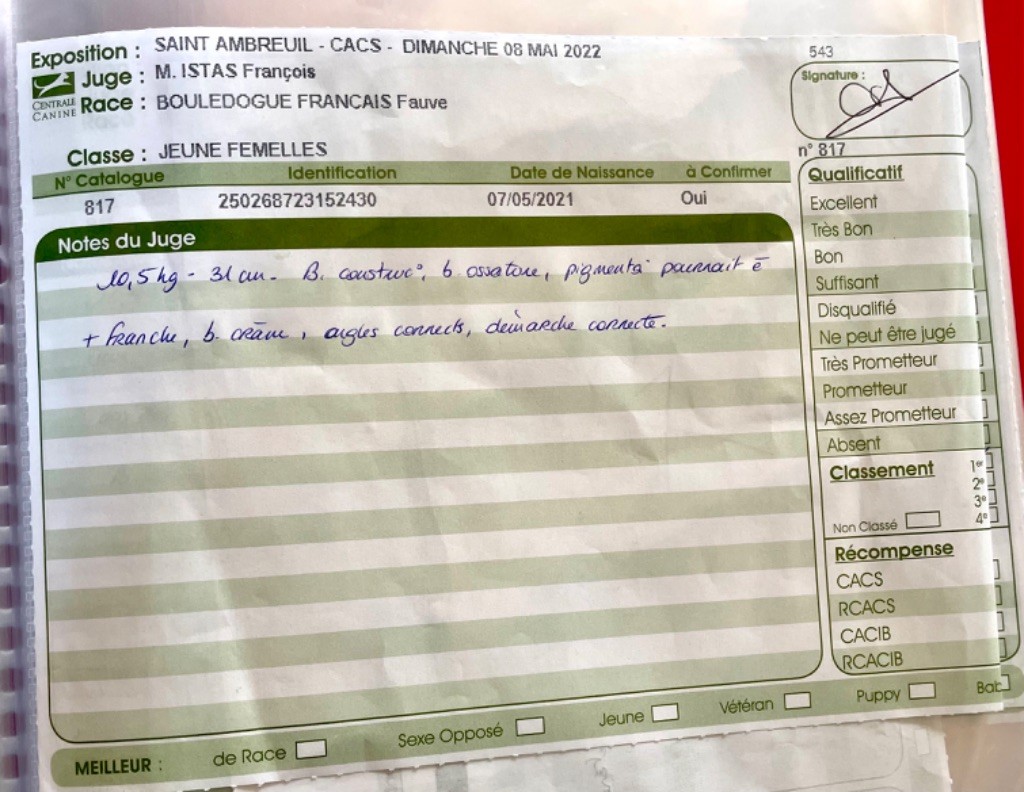 Exposition : SAINT AMBREUIL - CACS - DIMANCHE 08 MAI 2022
543
Juge : M. ISTAS François
Signature :
CENTRALE CANINE
Race : BOULEDOGUE FRANCAIS Fauve
Classe : JEUNE FEMELLES
n° 817
N° Catalogue Identification Date de Naissance à Confirmer
817 250268723152430 07/05/2021 Oui
Notes du Juge
10,5 kg - 31 cm. B. construc°, b. ossature, pigmenta° pourrait ê
+ franche, b. crâne, angles corrects, démarche correcte.
Qualificatif
Excellent
Très Bon
Bon
Suffisant
Disqualifié
Ne peut être jugé
Très Prometteur
Prometteur
Assez Prometteur
Absent
Classement
1er
2e
3e
Non Classé 4e
Récompense
CACS
RCACS
CACIB
RCACIB
MEILLEUR : de Race Sexe Opposé Jeune Vétéran Puppy Bab